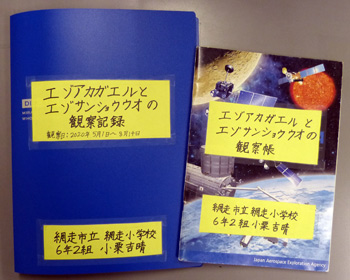 エゾアカガエルと
エゾサンショウウオの
観察記録
観察日:2020年5月1日〜8月19日
網走市立 網走小学校
6年2組 小栗吉晴
エゾアカガエルと
エゾサンショウウオの
観察帳
網走市立 網走小学校
6年2組 小栗吉晴
Japan Aerospace Exploration Agency